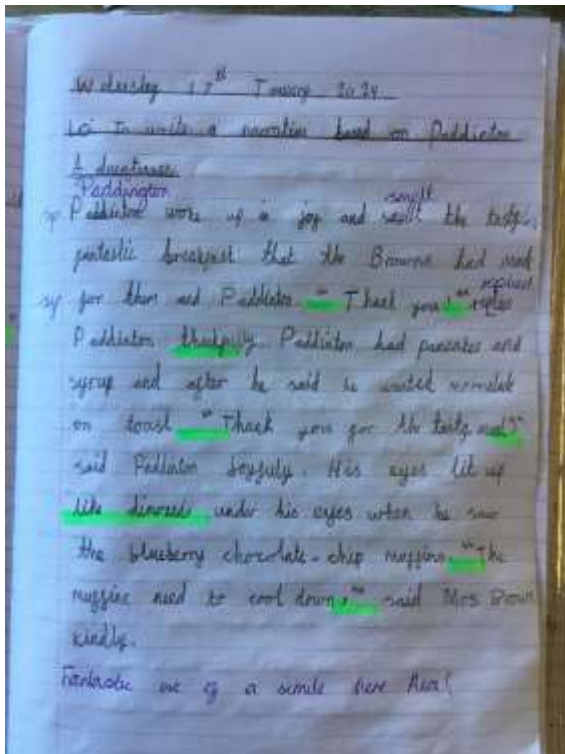 Wednesday 17th January 2024
LO: To write a narrative based on Paddinton
Adventures
Paddington
smelt
sp Paddinton woke up in joy and the tasty,
fantastic breakfast that the Browns had made
replied
sp for them and Paddinton. "Thank you!"
Paddinton thankfully. Paddinton had pancakes and
syrup and after he said he wanted
on toast. "Thank you for the tasty meal"
said Paddinton joyfuly. His eyes lit up
like under his eyes when he saw
the blueberry chocolate-chip muffins. "The
muffins need to cool down!" said Mrs Brown
kindly.
Fantastic use of a simile here